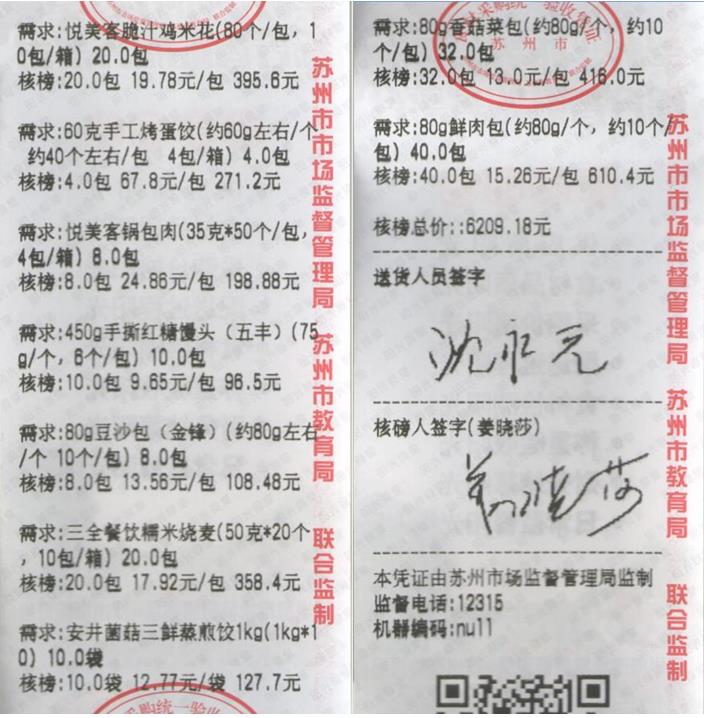 需求:悦美客脆汁鸡米花(80个/包，1
0包/箱) 20.0包
核榜:20.0包 19.78元/包 395.6元
需求:60克手工烤蛋饺(约60g左右/个
约40个左右/包 4包/箱) 4.0包
核榜:4.0包 67.8元/包 271.2元
需求:悦美客锅包肉(35克*50个/包，
4包/箱) 8.0包
核榜:8.0包 24.86元/包 198.88元
需求:450g手撕红糖馒头（五丰）(75
g/个，6个/包) 10.0包
核榜:10.0包 9.65元/包 96.5元
需求:80g豆沙包（金锋）(约80g左右
/个 10个/包) 8.0包
核榜:8.0包 13.56元/包 108.48元
需求:三全餐饮糯米烧麦(50克*20个
，10包/箱) 20.0包
核榜:20.0包 17.92元/包 358.4元
需求:安井菌菇三鲜蒸煎饺1kg(1kg*1
0) 10.0袋
核榜:10.0袋 12.77元/袋 127.7元
苏州市市场监督管理局 苏州市教育局 联合监制
需求:80g香菇菜包(约80g/个，约10
个/包) 32.0包
核榜:32.0包 13.0元/包 416.0元
需求:80g鲜肉包(约80g/个，约10个/
包) 40.0包
核榜:40.0包 15.26元/包 610.4元
核榜总价::6209.18元
送货人员签字
沈永元
核磅人签字(姜晓莎)
姜晓莎
本凭证由苏州市场监督管理局监制
监督电话:12315
机器编码:null
苏州市市场监督管理局 苏州市教育局 联合监制
苏州市
采购统一验收